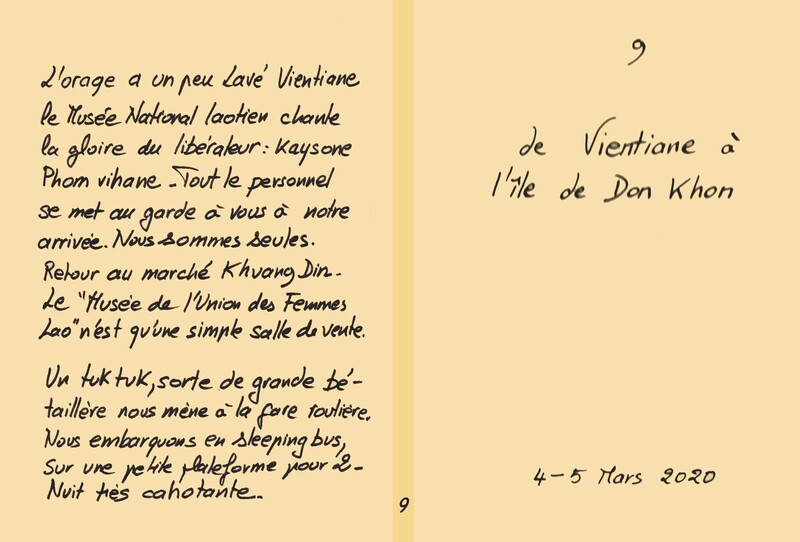 L'orage a un peu Lavé Vientiane
le Musée National laotien chante
la gloire du libérateur : Kaysone
Phom vihane - Tout le personnel
se met au garde à vous à notre
arrivée. Nous sommes seules.
Retour au marché Khuang Din -
Le "Musée de l'Union des Femmes
Lao" n'est qu'une simple salle de vente.
Un tuk tuk, sorte de grande bé-
taillère nous mène à la gare routière.
Nous embarquons en sleeping bus,
Sur une petite plateforme pour 2 -
Nuit très cahotante -
9
9
de Vientiane à
l'île de Don Khon
4 - 5 Mars 2020